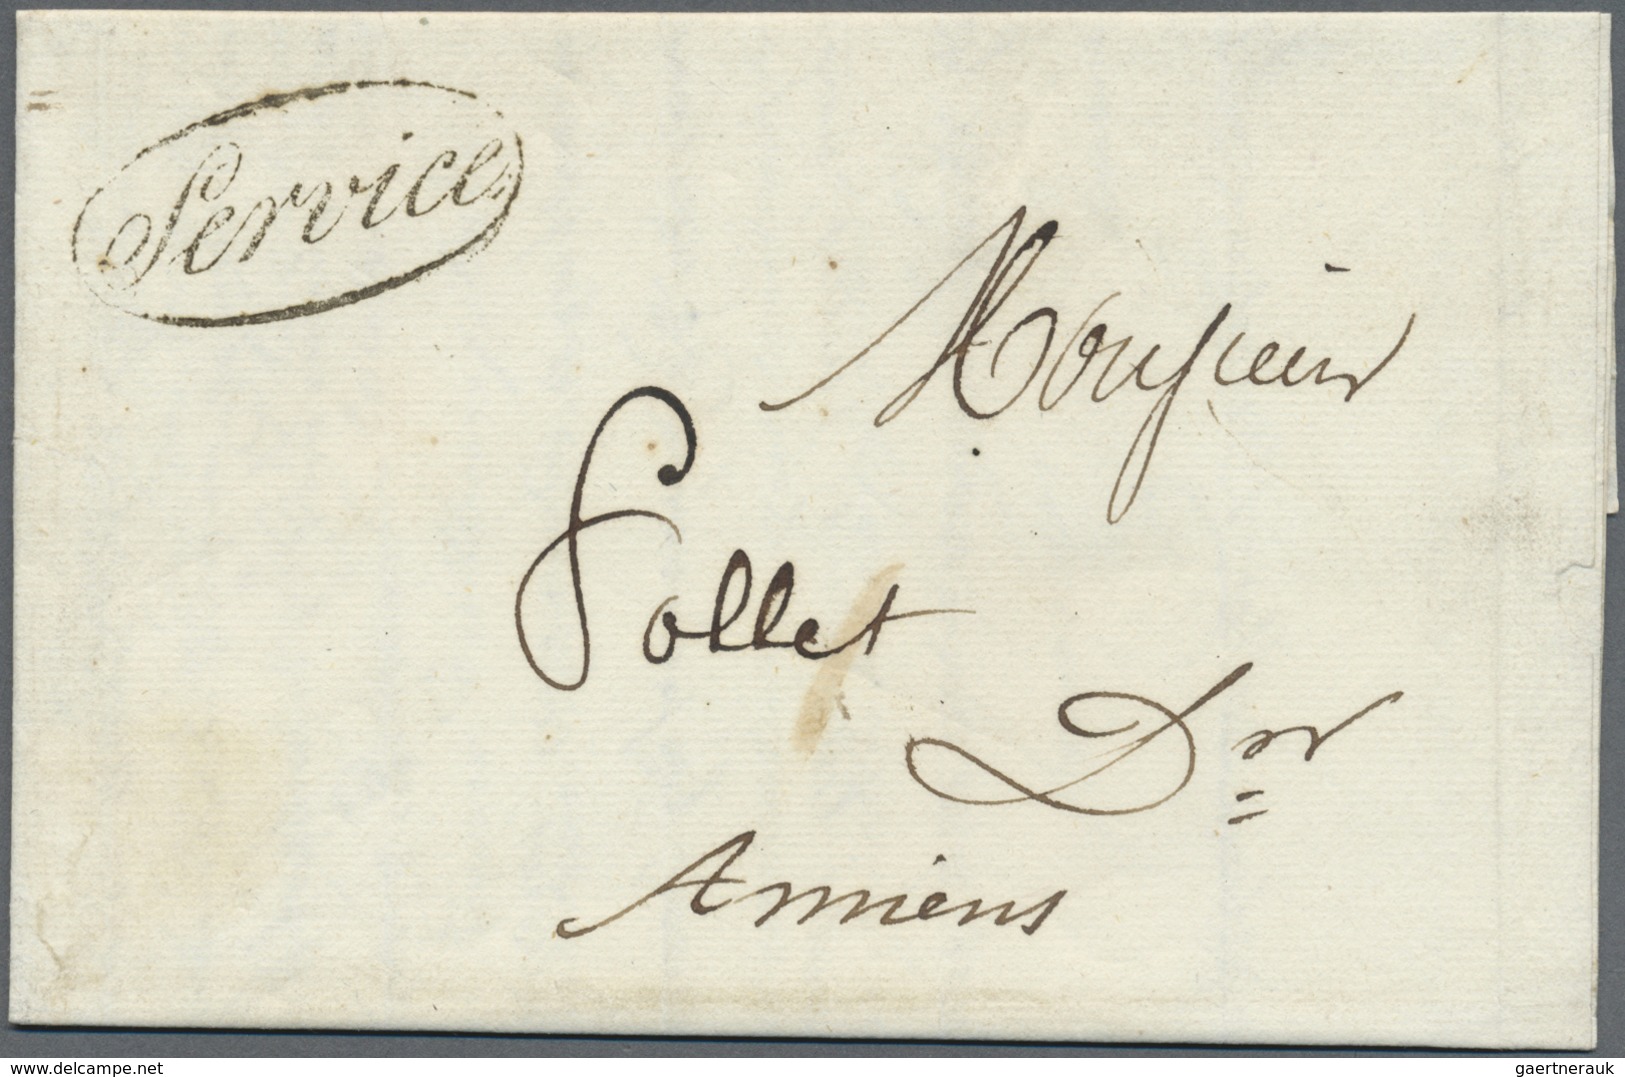 Service
Monsieur
Follet
Dr
Amiens
delcampe.net
gaertnerauk